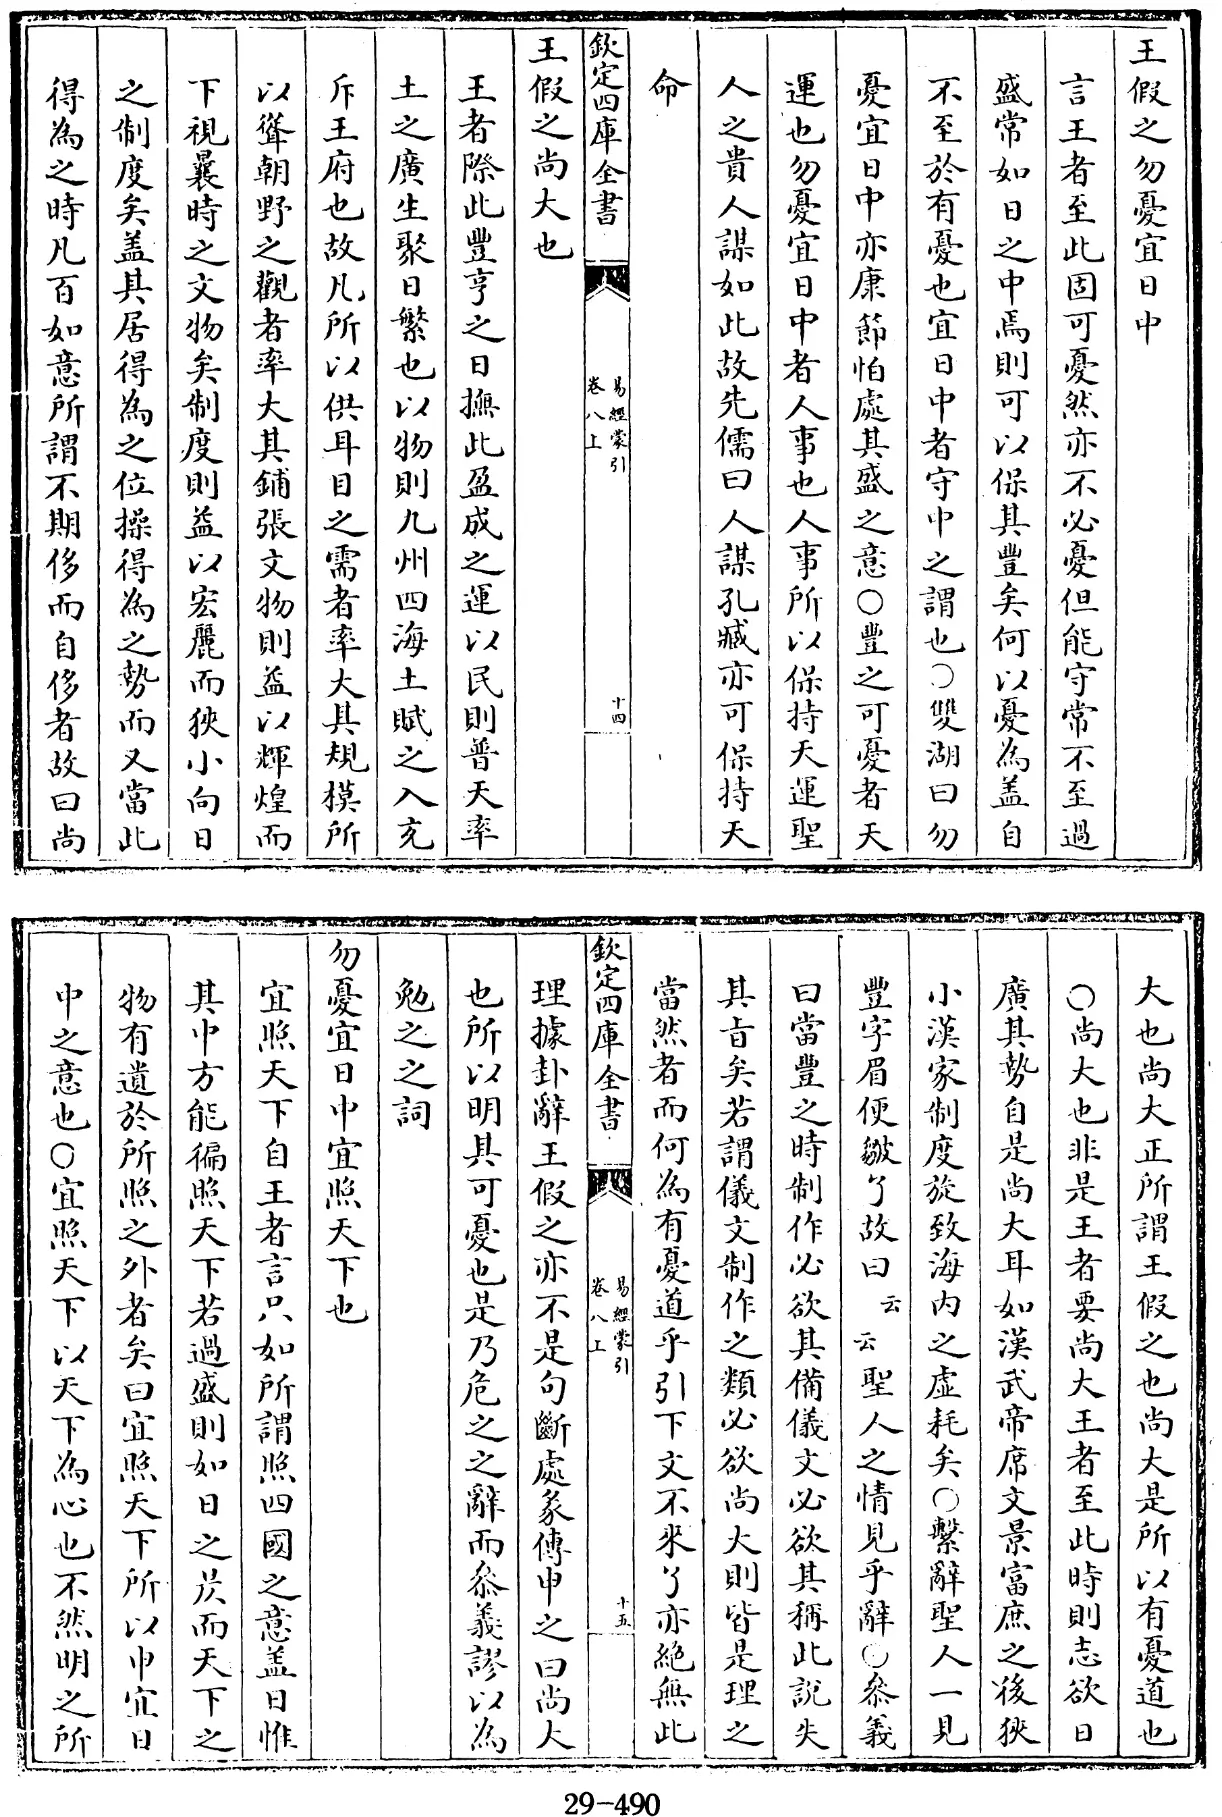 王假之勿憂宜日中
言王者至此固可憂然亦不必憂但能守常不至過
盛常如日之中焉則可以保其豐矣何以憂為蓋自
不至於有憂也宜日中者守中之謂也○雙湖曰勿
憂宜日中亦康節怕處其盛之意○豐之可憂者天
運也勿憂宜日中者人事也人事所以保持天運聖
人之貴人謀如此故先儒曰人謀孔臧亦可保持天
命
欽定四庫全書
易經蒙引
卷八上
十四
王假之尚大也
王者際此豐亨之日撫此盈成之運以民則普天率
土之廣生聚日繁也以物則九州四海土賦之入充
斥王府也故凡所以供耳目之需者率大其規模所
以聳朝野之觀者率大其鋪張文物則益以輝煌而
下視曩時之文物矣制度則益以宏麗而狹小向日
之制度矣蓋其居得為之位操得為之勢而又當此
得為之時凡百如意所謂不期侈而自侈者故曰尚
大也尚大正所謂王假之也尚大是所以有憂道也
○尚大也非是王者要尚大王者至此時則志欲日
廣其勢自是尚大耳如漢武帝席文景富庶之後狹
小漢家制度旋致海內之虛耗矣○繫辭聖人一見
豐字眉便皺了故曰云云聖人之情見乎辭○叅義
曰當豐之時制作必欲其備儀文必欲其稱此說失
其旨矣若謂儀文制作之類必欲尚大則皆是理之
當然者而何為有憂道乎引下文不來了亦絕無此
欽定四庫全書
易經蒙引
卷八上
十五
理據卦辭王假之亦不是句斷處彖傳申之曰尚大
也所以明其可憂也是乃危之之辭而叅義謬以為
勉之之詞
勿憂宜日中宜照天下也
宜照天下自王者言只如所謂照四國之意蓋日惟
其中方能徧照天下若過盛則如日之昃而天下之
物有遺於所照之外者矣曰宜照天下所以申宜日
中之意也○宜照天下以天下為心也不然明之所
29-490